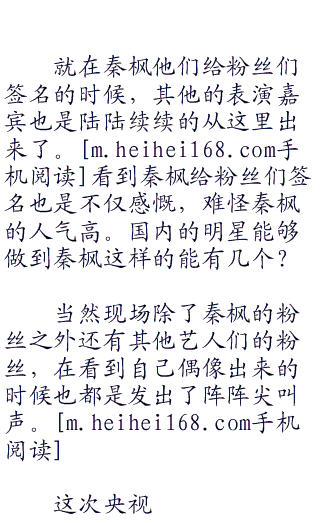 就在秦枫他们给粉丝们
签名的时候，其他的表演嘉
宾也是陆陆续续的从这里出
来了。[m.heihei168.com手
机阅读]看到秦枫给粉丝们签
名也是不仅感慨，难怪秦枫
的人气高。国内的明星能够
做到秦枫这样的能有几个？
当然现场除了秦枫的粉
丝之外还有其他艺人们的粉
丝，在看到自己偶像出来的
时候也都是发出了阵阵尖叫
声。[m.heihei168.com手机
阅读]
这次央视